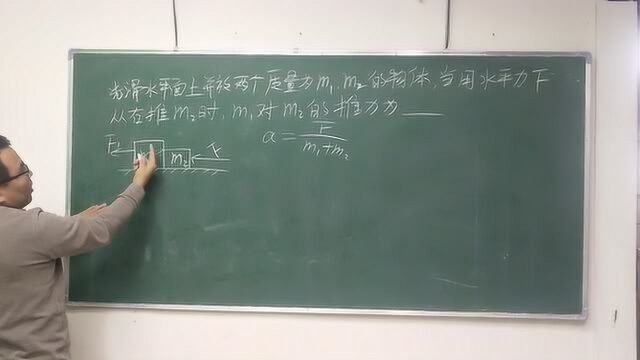 光滑水平面上并放两个质量为m₁、m₂的物体,当用水平力F
从右推m₂时,m₁对m₂的推力为____
a = F/(m₁+m₂)
F
m₂
F